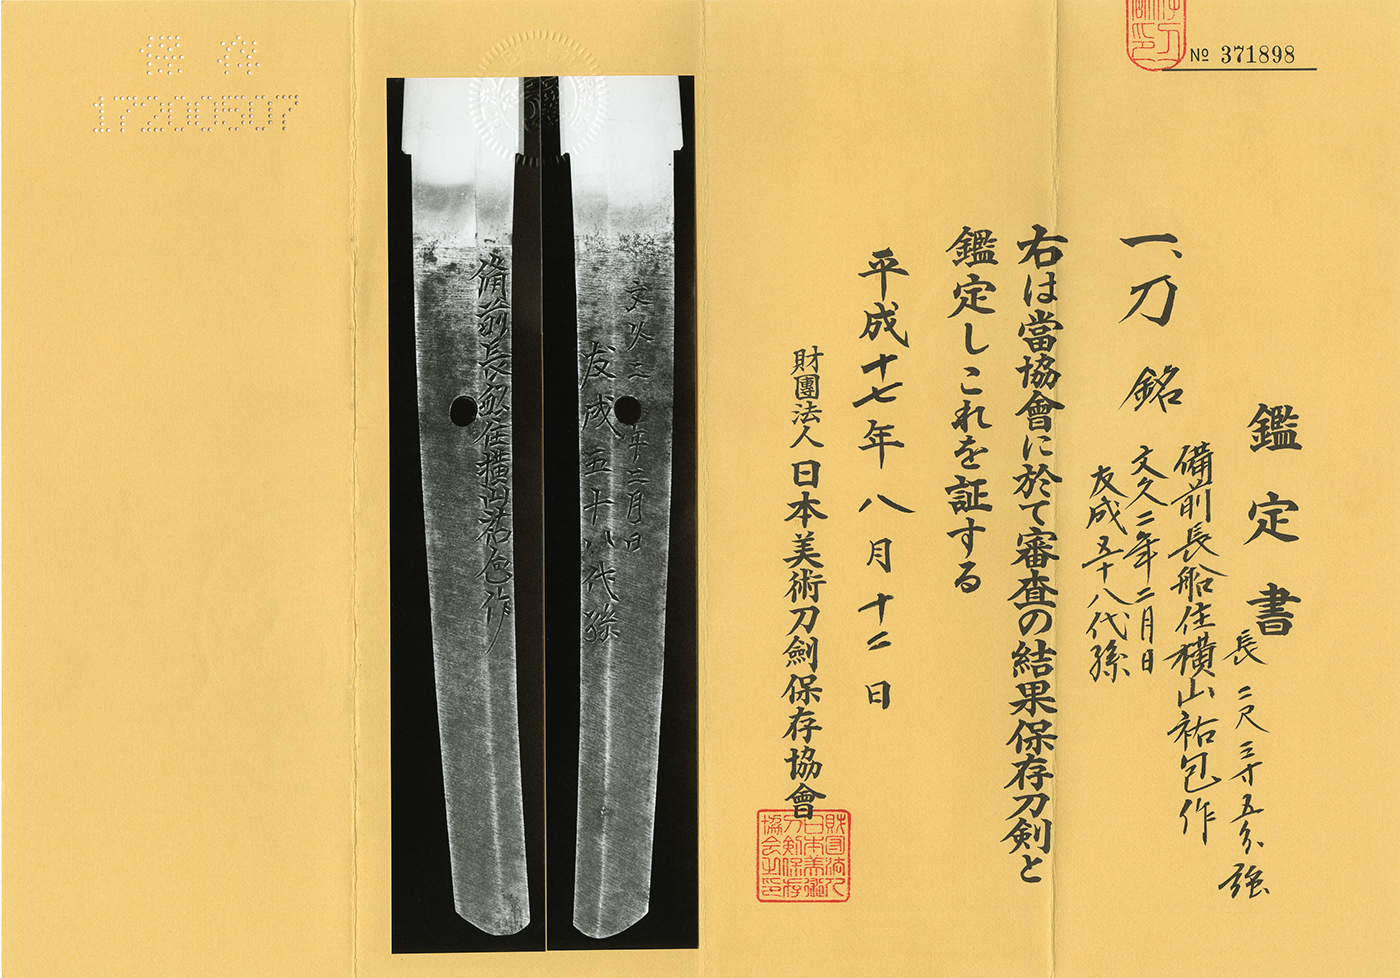 № 371898
鑑定書
長 二尺三寸五分強
一、刀 銘
備前長船住横山祐包作
文久二年二月日
友成五十八代孫
右は當協會に於て審査の結果保存刀剣と
鑑定しこれを証する
平成十七年八月十二日
財團法人日本美術刀劍保存協會
財団法人日本美術刀剣保存協会之印
文久二年二月日
友成五十八代孫
備前長船住横山祐包作
保存
17200507